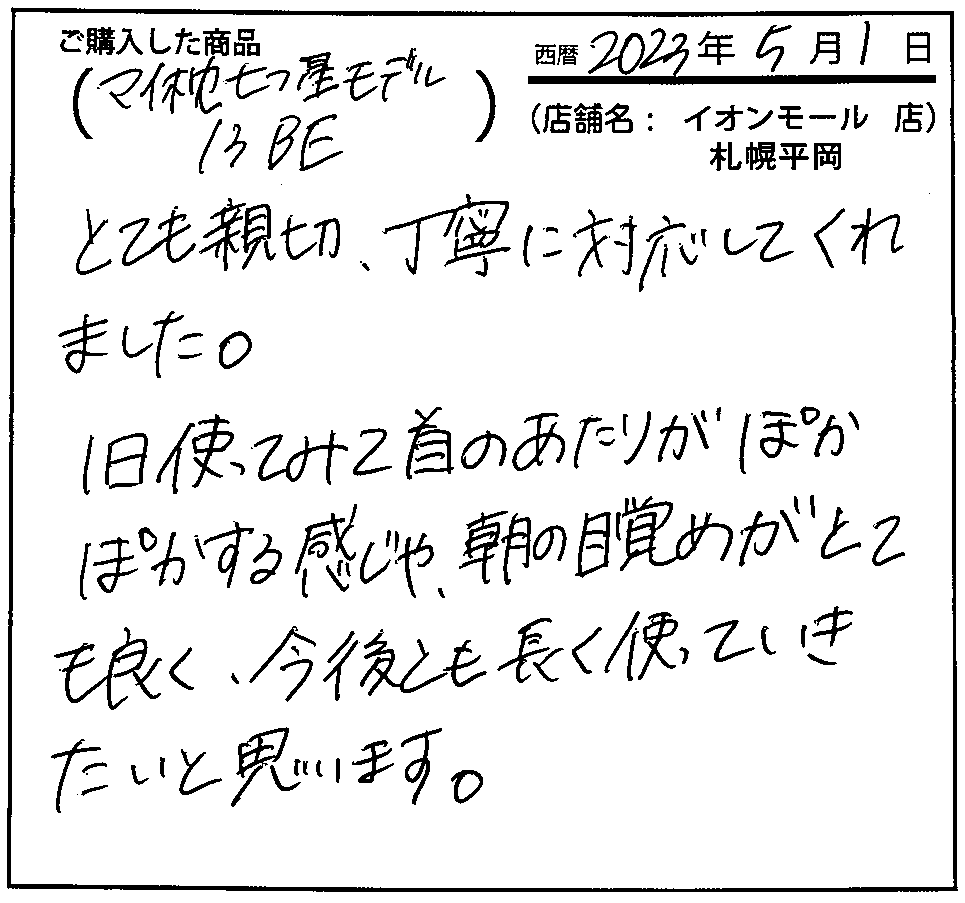 ご購入した商品
(マイ枕七つ星モデル
13 BE)
西暦 2023年 5月1日
(店舗名: イオンモール 店)
札幌平岡
とても親切、丁寧に対応してくれ
ました。
1日使ってみて首のあたりがぽか
ぽかする感じや、朝の目覚めがとて
も良く、今後とも長く使っていき
たいと思います。